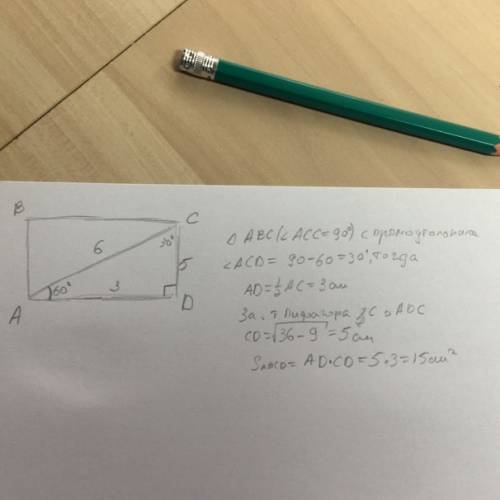 B
C
6
30°
5
60°
3
A
D
Δ ABC (∠ACC = 90°) с
∠ACD = 90-60=30°, тогда
AD = ½ AC = 3 см
За. т Пифагора З С Δ ADC
CD = √36-9 = 5 см
SABCD = AD·CD = 5·3 = 15 см²